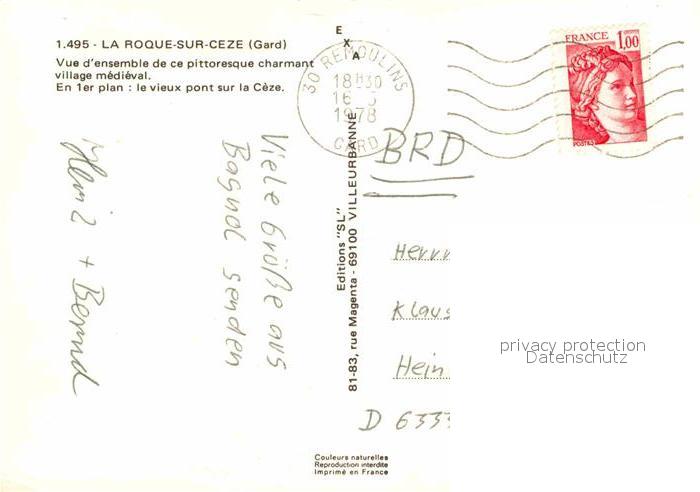 1.495 - LA ROQUE-SUR-CEZE (Gard)
Vue d'ensemble de ce pittoresque charmant
village médiéval.
En 1er plan : le vieux pont sur la Cèze.
EXA
30 REMOULINS
18H30
16
1978
GARD
FRANCE 1,00
POSTES
Viele Grüße aus
Bagnol senden
+ Bernd
Editions "SL"
81-83, rue Magenta - 69100 VILLEURBANNE
BRD
Herrn
Klaus
Hein
D 6333
privacy protection
Datenschutz
Couleurs naturelles
Reproduction interdite
Imprimé en France